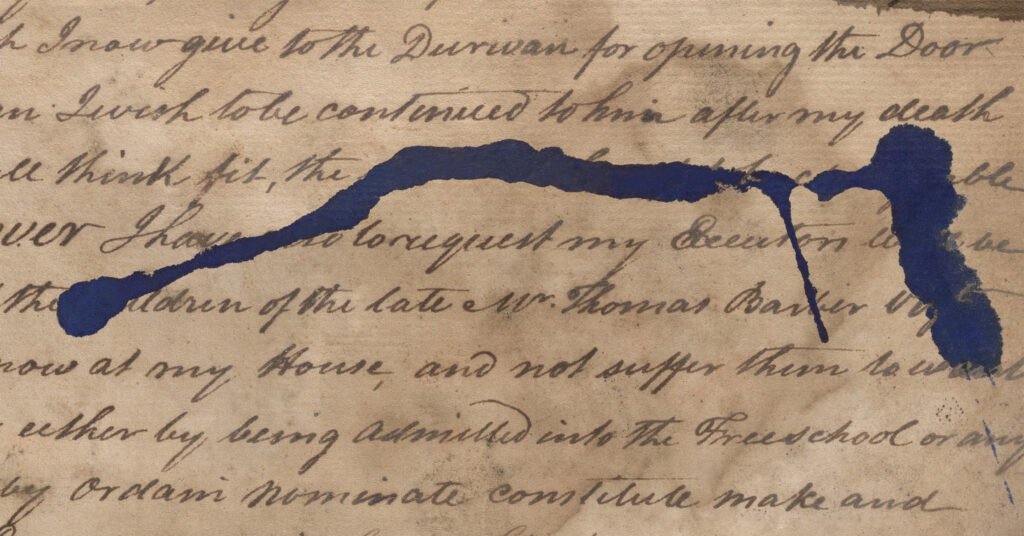 h I now give to the Durwan for opening the Door
I wish to be continued to him after my death
think fit, the
I have to request my Executors be
the children of the late Mr. Thomas Barber
now at my House, and not suffer them to want
either by being admitted into the Freeschool or any
by Ordain nominate constitute make and